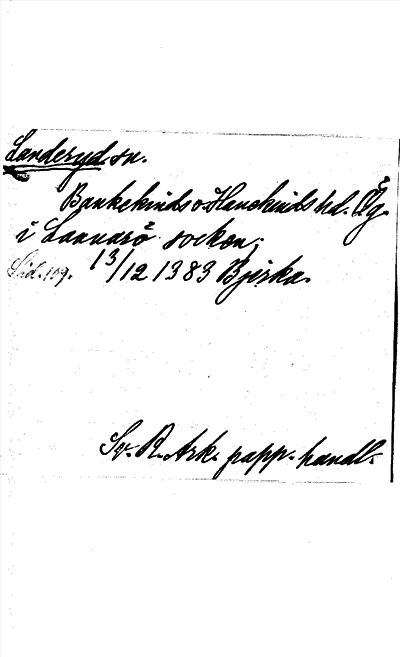 Landeryd sn.
Bankekinds o Hanekinds hd. Ög.
i Lannarö sockon;
Sid. 109. 13/12 1383 Bjerka.
Sv. R. Ark. papp. handl.